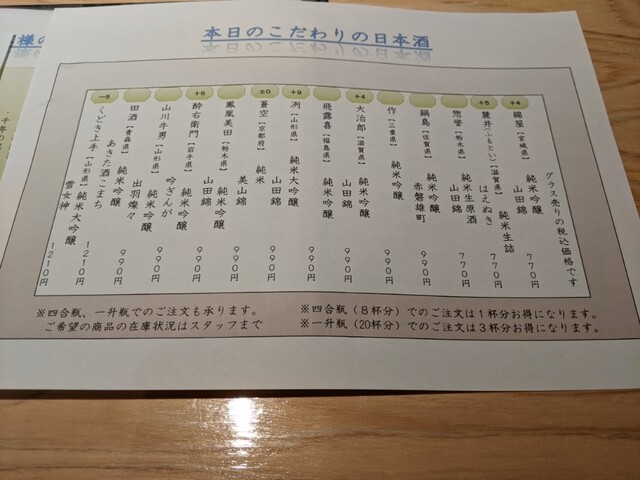 本日のこだわりの日本酒
グラス売りの税込価格です
+4
綿屋【宮城県】 純米吟醸
山田錦
770円
+5
麓井(ふもとい)【滋賀県】 純米生詰
はえぬき
770円
惣誉【栃木県】 純米生原酒
山田錦
770円
鍋島【佐賀県】 純米吟醸
赤磐雄町
990円
作【三重県】 純米吟醸
990円
+4
大治郎【滋賀県】 純米吟醸
山田錦
990円
飛露喜【福島県】 純米吟醸
990円
+9
冽【山形県】 純米大吟醸
山田錦
990円
±0
蒼空【京都府】 純米
山田錦
990円
鳳凰美田【栃木県】 純米吟醸
美山錦
990円
+6
酔右衛門【岩手県】 純米吟醸
山田錦
990円
山川牛男【山形県】 純米吟醸
吟ぎんが
990円
田酒【青森県】 純米吟醸
出羽燦々
990円
−5
くどき上手【山形県】 純米大吟醸
あきた酒こまち
1210円
雪女神
1210円
※四合瓶、一升瓶でのご注文も承ります。
ご希望の商品の在庫状況はスタッフまで
※四合瓶(8杯分)でのご注文は1杯分お得になります。
※一升瓶(20杯分)でのご注文は3杯分お得になります。